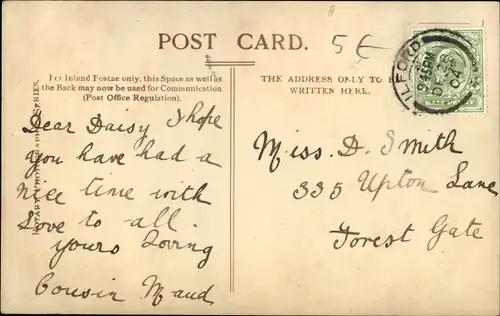 POST CARD.
5€
For Inland Postage only, this Space as well as
the Back may now be used for Communication
(Post Office Regulation).
THE ADDRESS ONLY TO BE
WRITTEN HERE.
ILFORD
DE 28
04
Dear Daisy I hope
you have had a
nice time with
Love to all.
yours Loving
Cousin Maud
Miss. D. Smith
335 Upton Lane
Forest Gate
ROTARY PHOTOGRAPHIC SERIES.